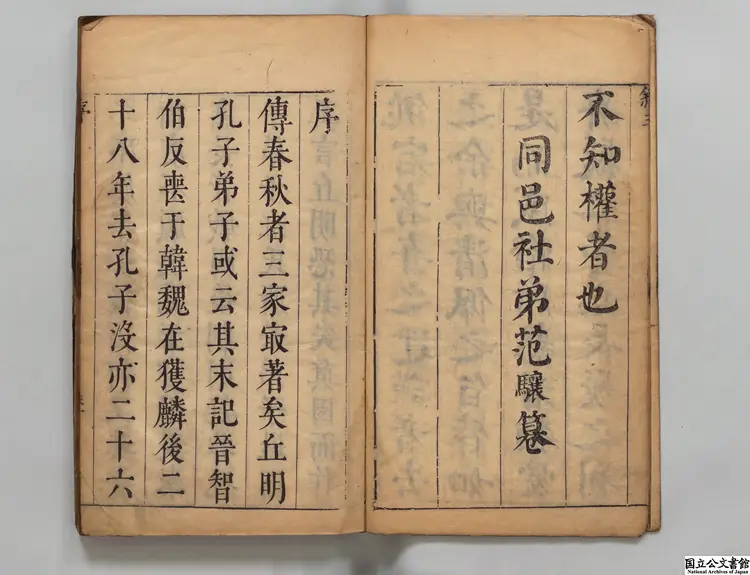 敘三
不知權者也
同邑社弟范驤篹
序
傳春秋者三家㝡著矣丘明
孔子弟子或云其末記晉智
伯反喪于韓魏在獲麟後二
十八年去孔子沒亦二十六
序
国立公文書館
National Archives of Japan